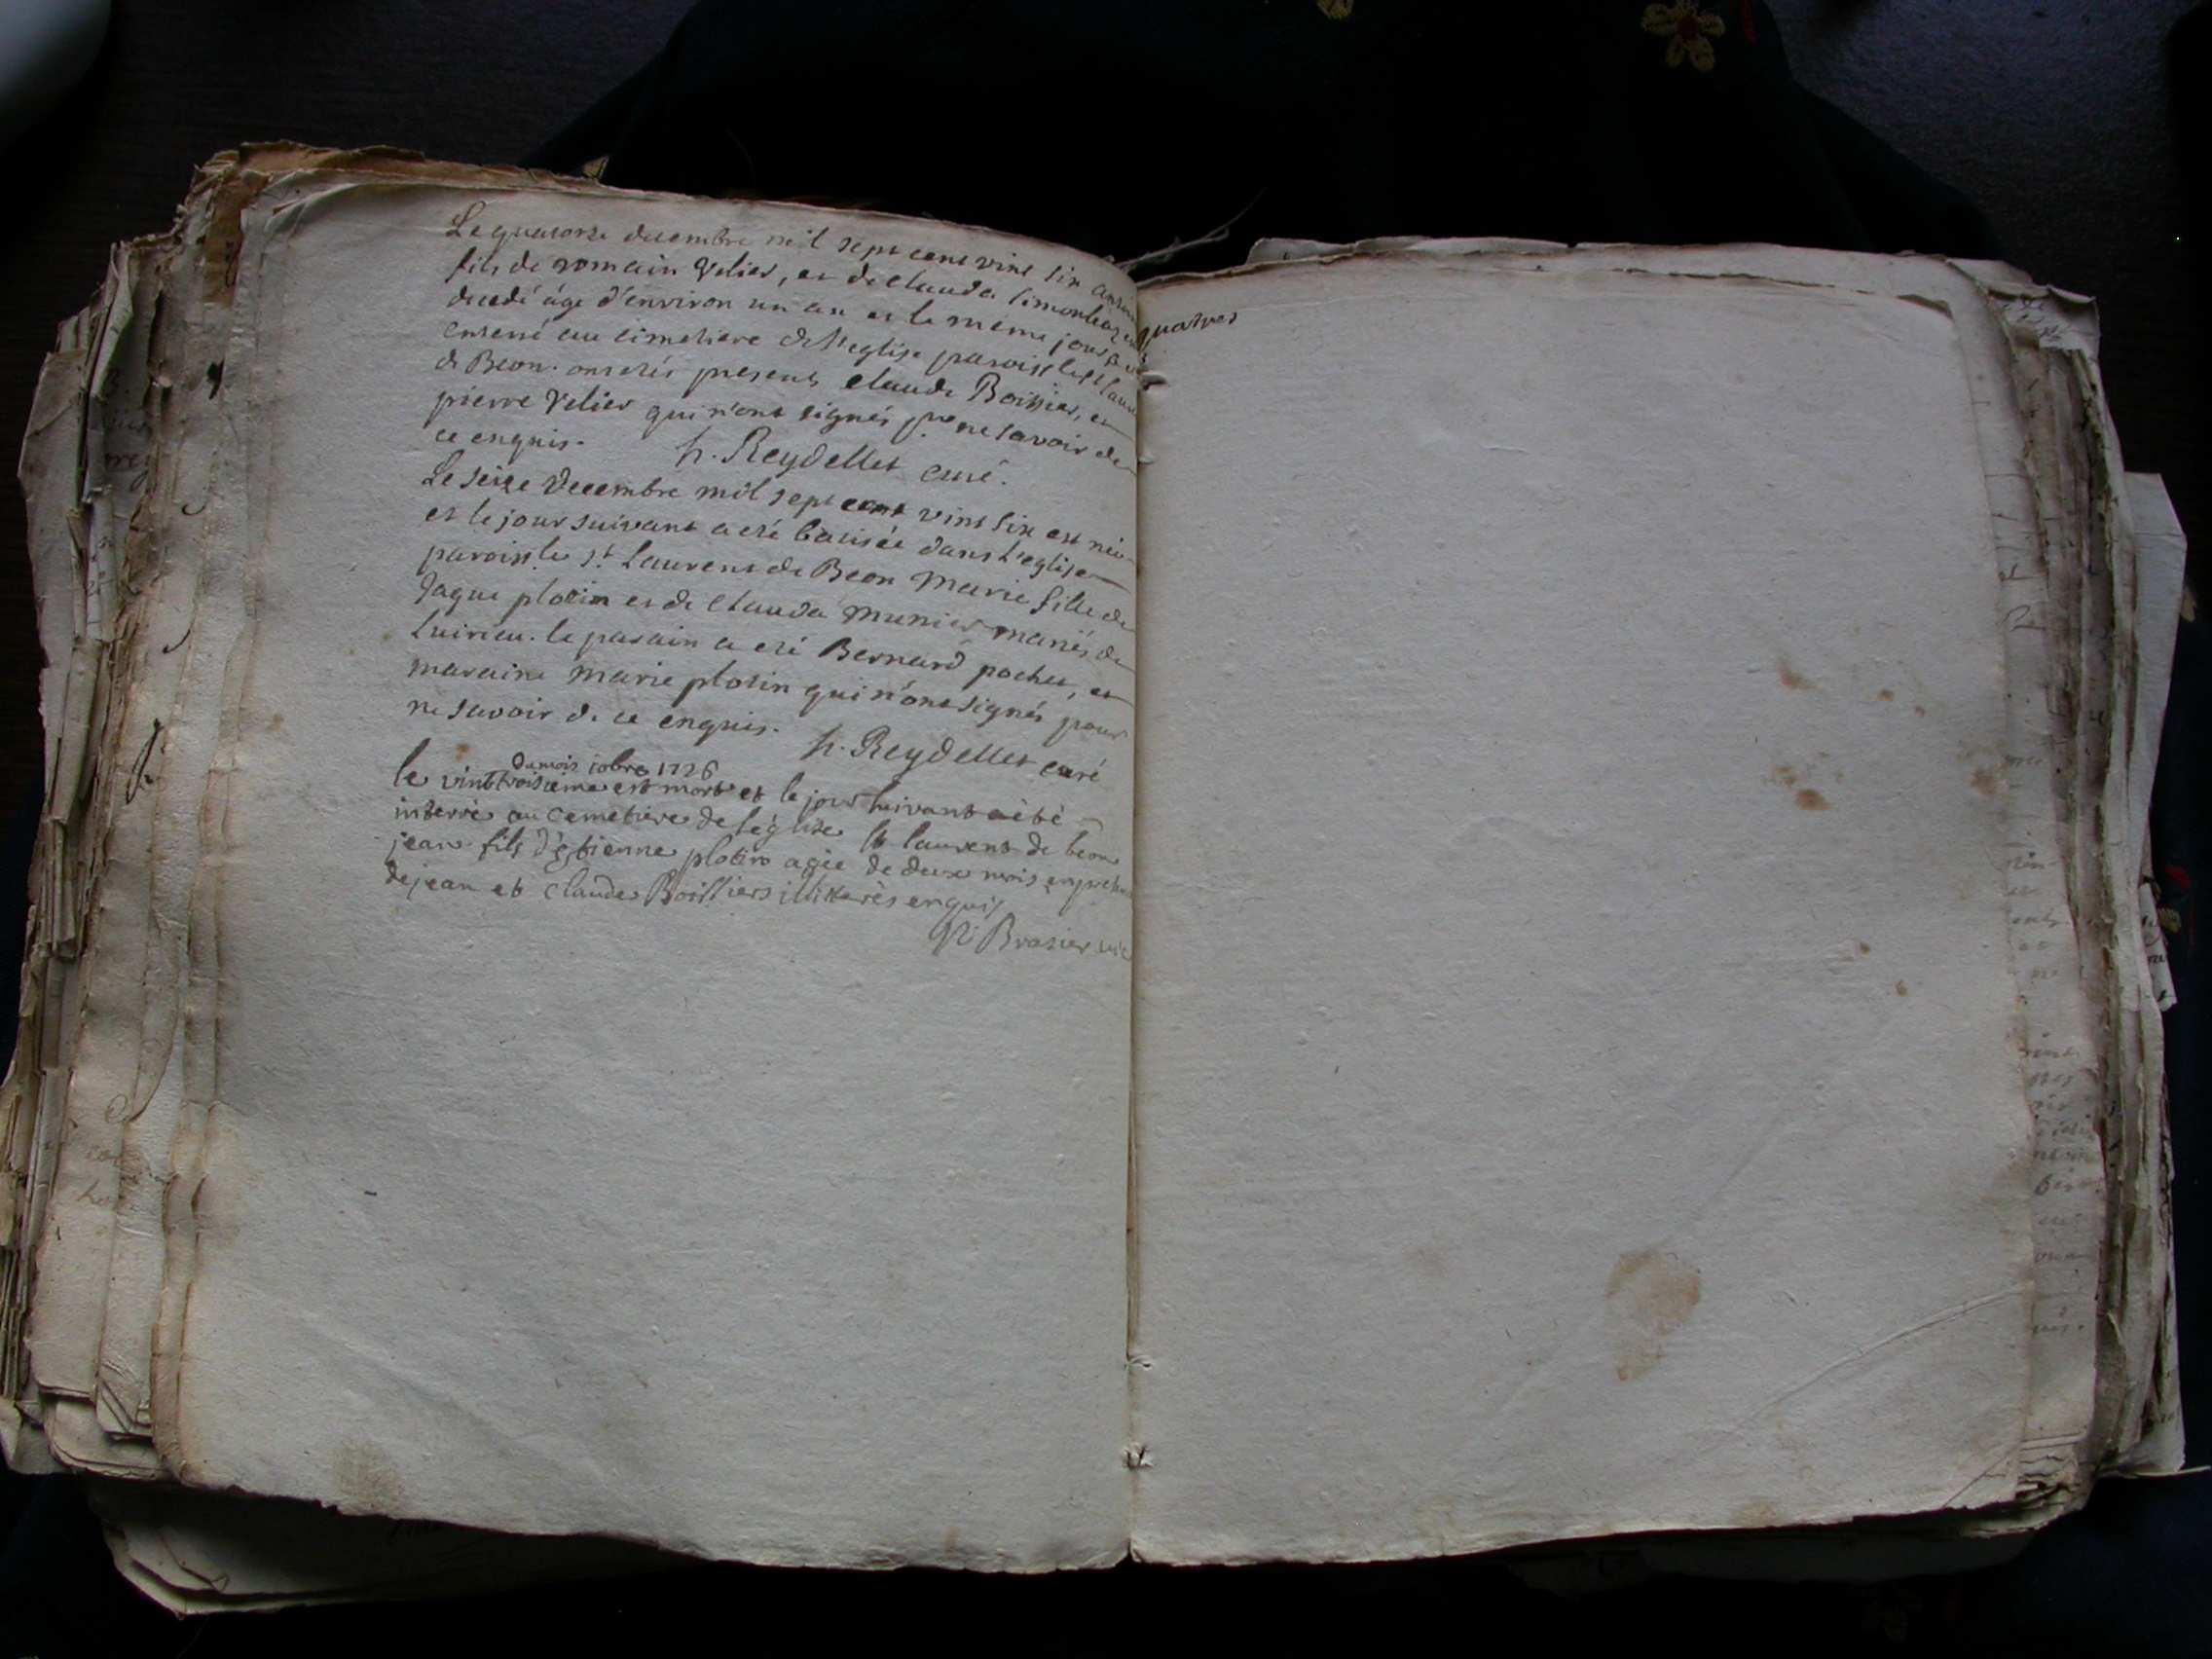 Le quatorze decembre mil sept cent vint six
fils de romain Velier, et de Clauda
decedé âgé d'environ un an et le même jour
enterré au cimetiere de l'eglise paroiss.le St
de Beon. ont étés presents Claude Boissier, et
pierre Velier qui n'ont signés pr ne savoir de
ce enquis. h. Reydellet curé.
Le seize Decembre mil sept cent vint six est née
et le jour suivant a eté batisée dans l'eglise
paroiss.le St Laurent de Beon Marie fille de
Jaque plotin et de Clauda Munier mariés de
Luirieu. le parain a eté Bernard pochet, et
maraine Marie plotin qui n'ont signés pour
ne savoir de ce enquis. h. Reydellet curé
du mois 10bre 1726
le vint troisieme est mort et le jour suivant a été
interré au cemetiere de l'église St laurent de beon
jean fils d'étienne plotin agée de deux mois
de jean et Claude Boissiers illiterès enquis
Brasier vic